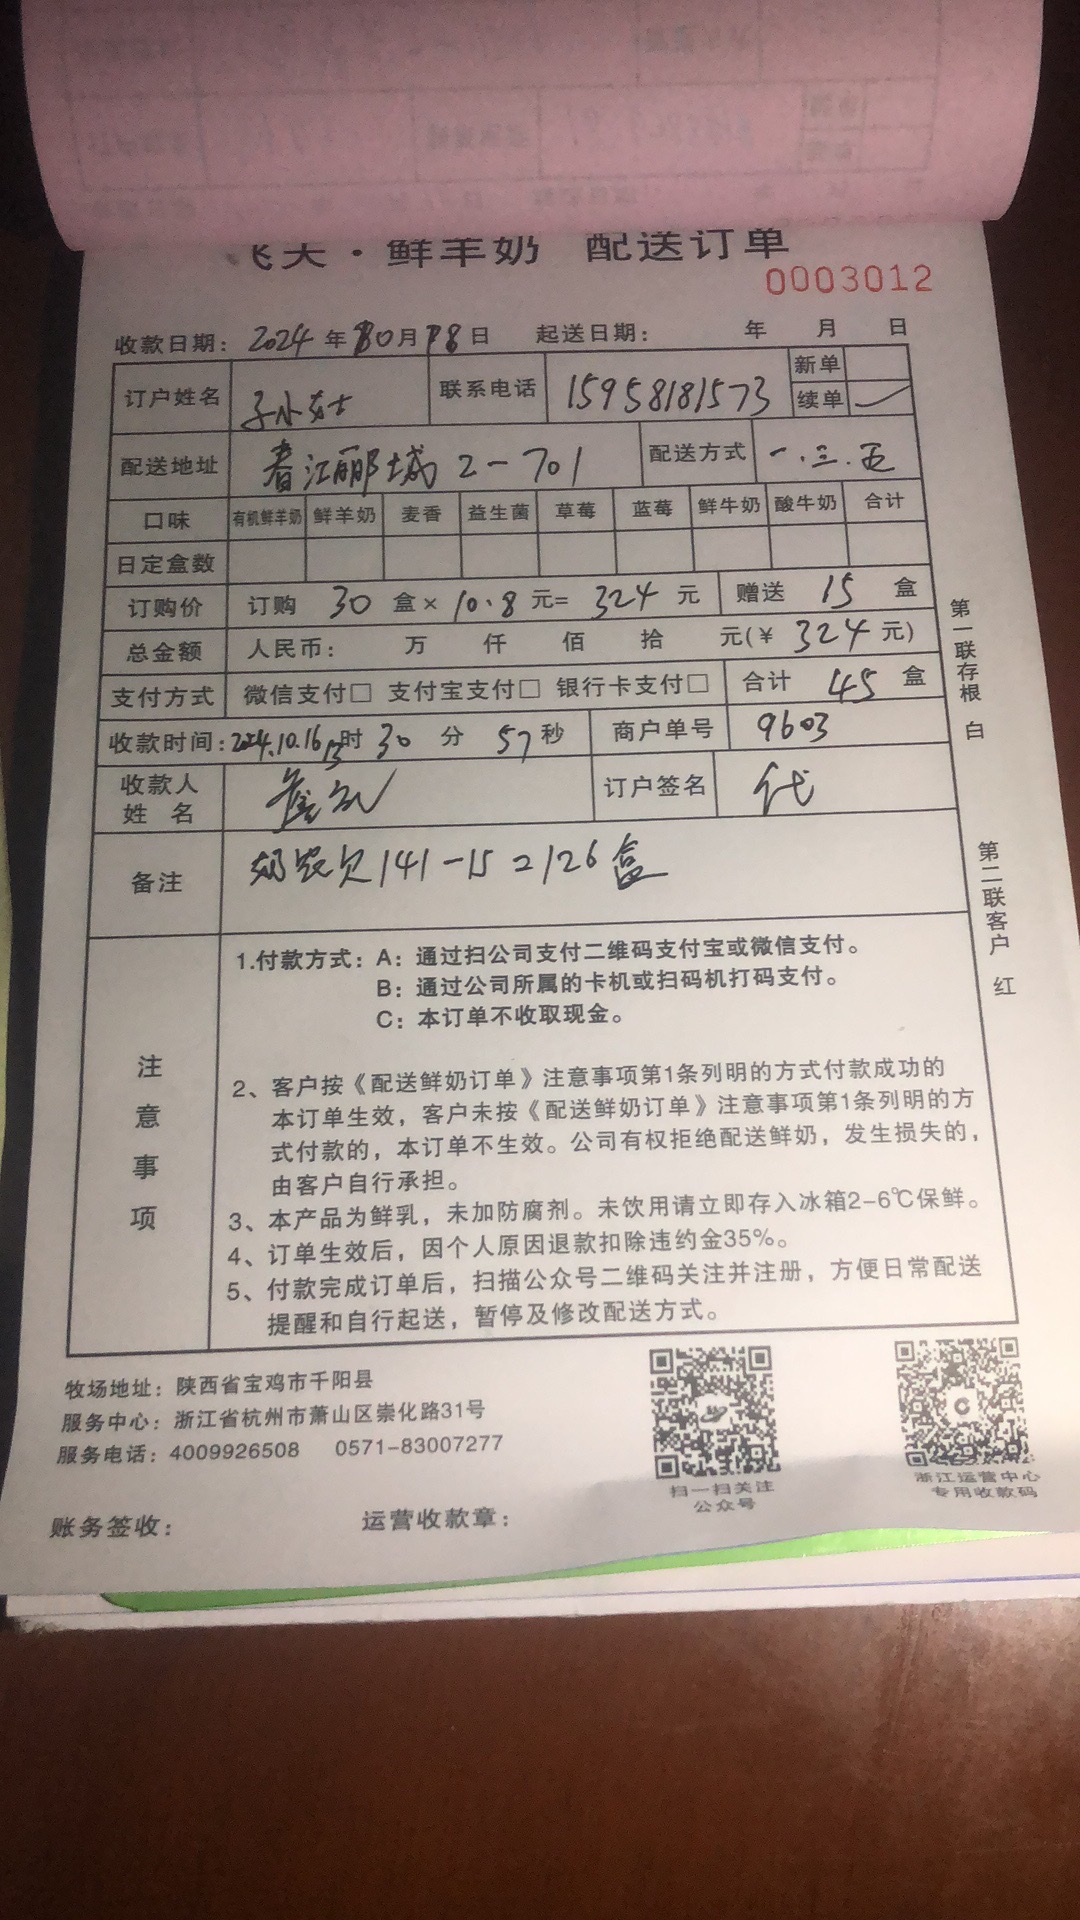 飞天·鲜羊奶 配送订单
0003012
收款日期： 2024 年 10 月 18 日 起送日期： 年 月 日
订户姓名 联系电话 15958181573 新单
续单 ✓
配送地址 春江郦城 2-701 配送方式 一.三.五
口味 有机鲜羊奶 鲜羊奶 麦香 益生菌 草莓 蓝莓 鲜牛奶 酸牛奶 合计
日定盒数
订购价 订购 30 盒× 10.8 元= 324 元 赠送 15 盒
总金额 人民币： 万 仟 佰 拾 元(￥ 324 元)
支付方式 微信支付□ 支付宝支付□ 银行卡支付□ 合计 45 盒
收款时间：2024.10.16 时 30 分 57 秒 商户单号 9603
收款人
姓 名 订户签名 代
备注 欠141-15=126盒
注意事项
1.付款方式：A：通过扫公司支付二维码支付宝或微信支付。
B：通过公司所属的卡机或扫码机打码支付。
C：本订单不收取现金。
2、客户按《配送鲜奶订单》注意事项第1条列明的方式付款成功的
本订单生效，客户未按《配送鲜奶订单》注意事项第1条列明的方
式付款的，本订单不生效。公司有权拒绝配送鲜奶，发生损失的，
由客户自行承担。
3、本产品为鲜乳，未加防腐剂。未饮用请立即存入冰箱2-6℃保鲜。
4、订单生效后，因个人原因退款扣除违约金35%。
5、付款完成订单后，扫描公众号二维码关注并注册，方便日常配送
提醒和自行起送，暂停及修改配送方式。
第一联存根 白
第二联客户 红
牧场地址：陕西省宝鸡市千阳县
服务中心：浙江省杭州市萧山区崇化路31号
服务电话：4009926508 0571-83007277
扫一扫关注
公众号
浙江运营中心
专用收款码
账务签收： 运营收款章：